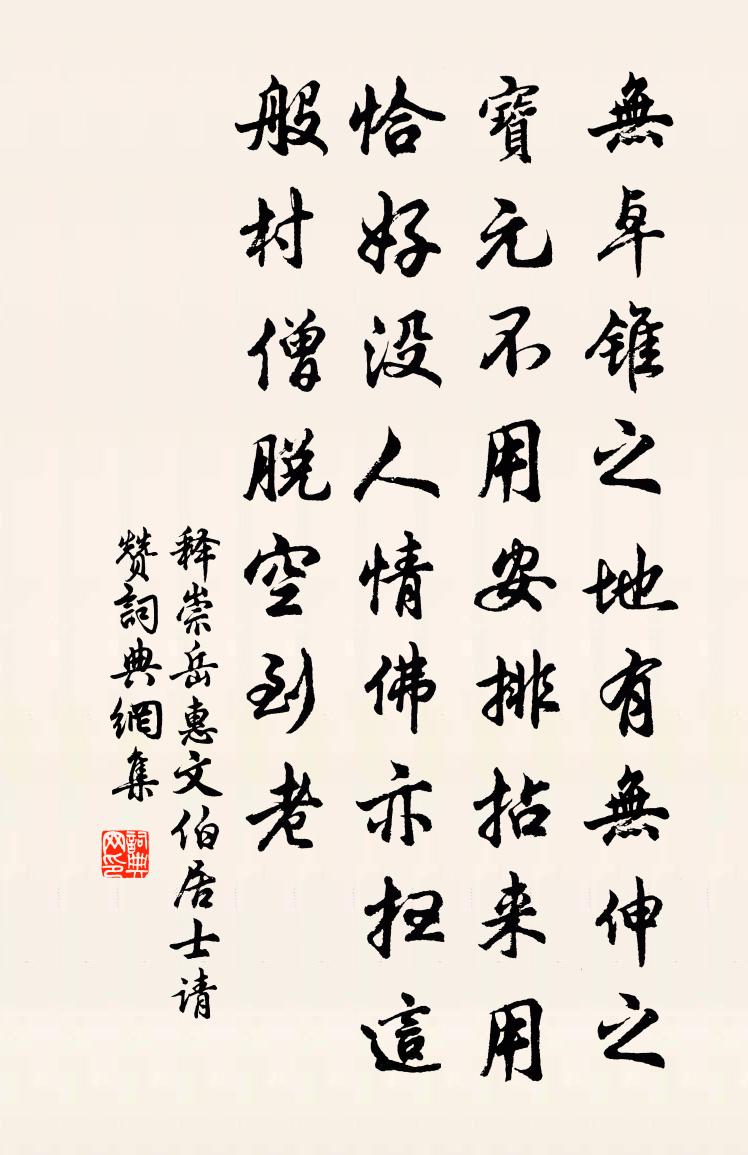 無卓錐之地有無伸之
寶元不用安排拈来用
恰好没人情佛亦扭這
般村僧脱空到老
释崇岳惠文伯居士请
赞詞典網集
詞典网印